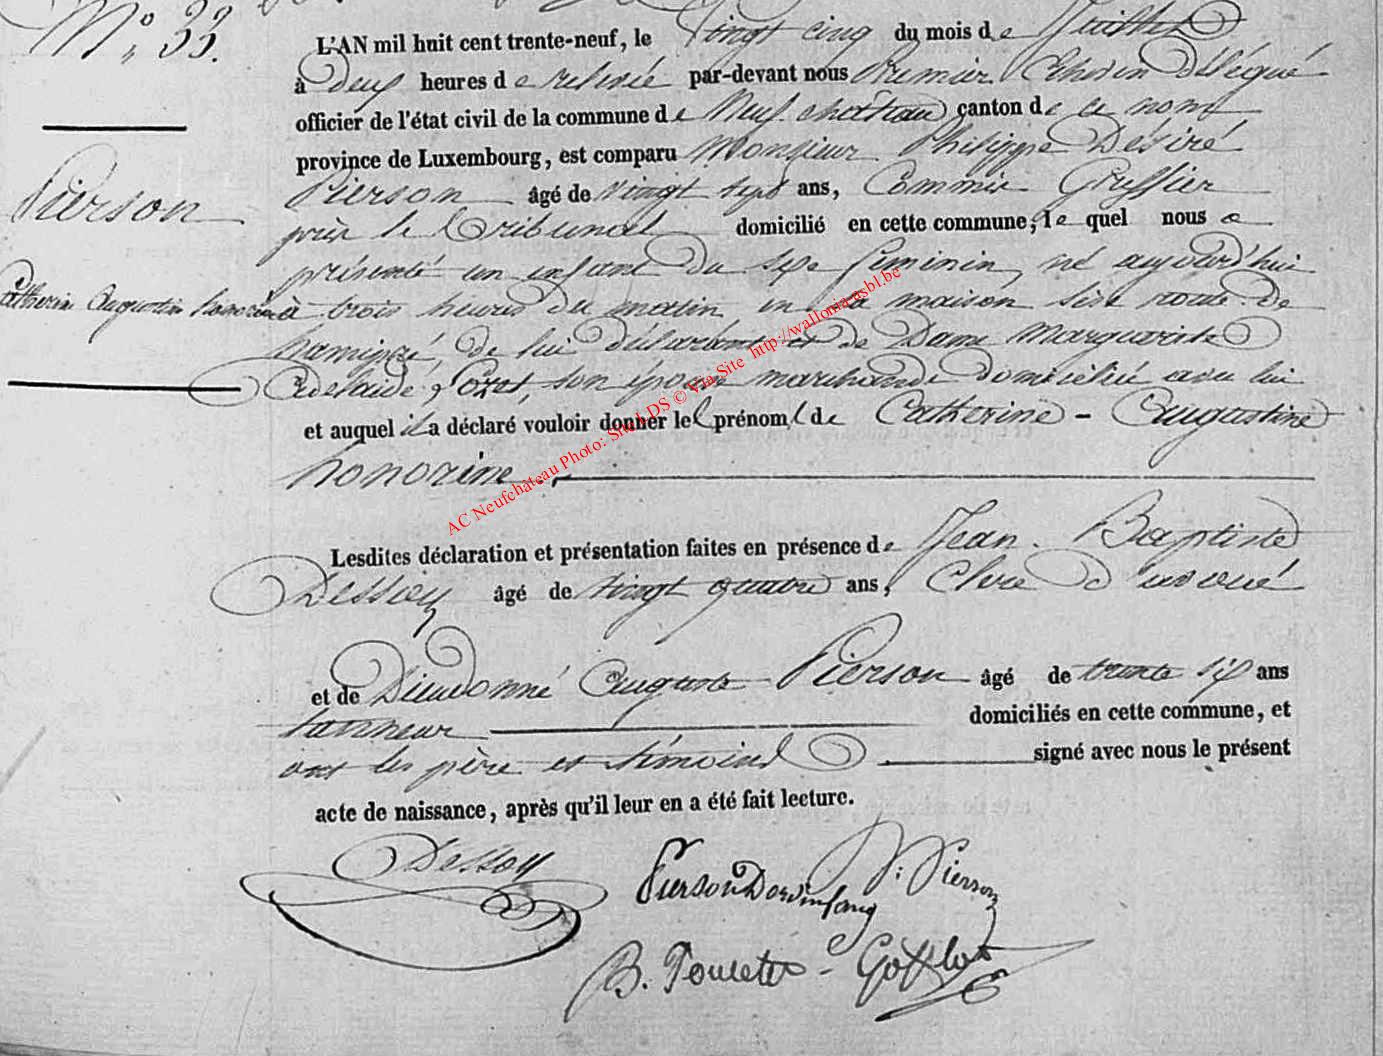 N° 33.
L'AN mil huit cent trente-neuf, le Vingt cinq du mois de Juillet
à Deux heures de relevée par-devant nous Premier Echevin délégué
officier de l'état civil de la commune de Neufchâteau canton de ce nom
province de Luxembourg, est comparu Monsieur Philippe Désiré
Pierson âgé de vingt sept ans, Commis Greffier
près le Tribunal domicilié en cette commune, le quel nous a
présenté un enfant du sexe féminin, né aujourd'hui
à trois heures du matin en sa maison sise route de
de lui déclarant et de Dame Marguerite
Adelaïde son épouse marchande domiciliée avec lui
et auquel il a déclaré vouloir donner les prénoms de Catherine - Augustine
honorine.
Pierson
Catherin Augustin honorine
Lesdites déclaration et présentation faites en présence de Jean Baptiste
Dessoy âgé de vingt quatre ans, Clerc d'avoué
et de Dieudonné Auguste Pierson âgé de trente six ans
tanneur domiciliés en cette commune, et
ont les père et témoins signé avec nous le présent
acte de naissance, après qu'il leur en a été fait lecture.
Dessoy Pierson D. Pierson
B. Poncelet - Gofflot
AC Neufchateau Photo: StephDS © Via Site http://wallonia.asbl.be